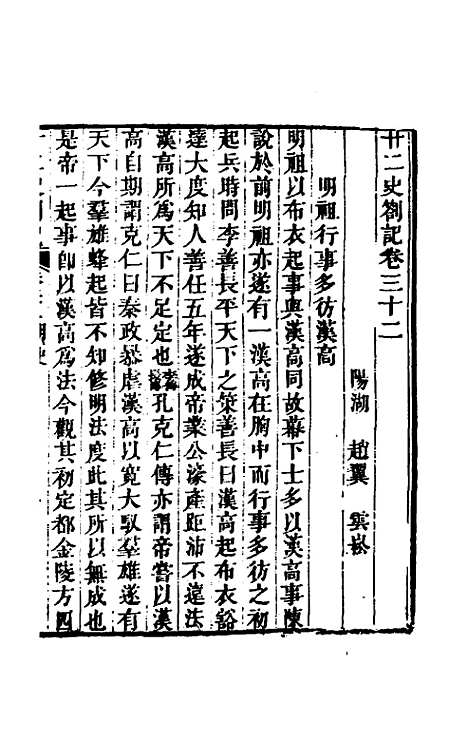 廿二史劄記卷三十二
陽湖　趙翼　雲崧
明祖行事多彷漢高
明祖以布衣起事與漢高同故幕下士多以漢高事陳
說於前明祖亦遂有一漢高在胸中而行事多彷之初
起兵時問李善長平天下之策善長曰漢高起布衣豁
達大度知人善任五年遂成帝業公濠產距沛不遠法
漢高所為天下不足定也孔克仁傳亦謂帝嘗以漢
高自期謂克仁曰秦政暴虐漢高以寬大馭羣雄遂有
天下今羣雄蜂起皆不知修明法度此其所以無成也
是帝一起事卽以漢高為法今觀其初定都金陵方四